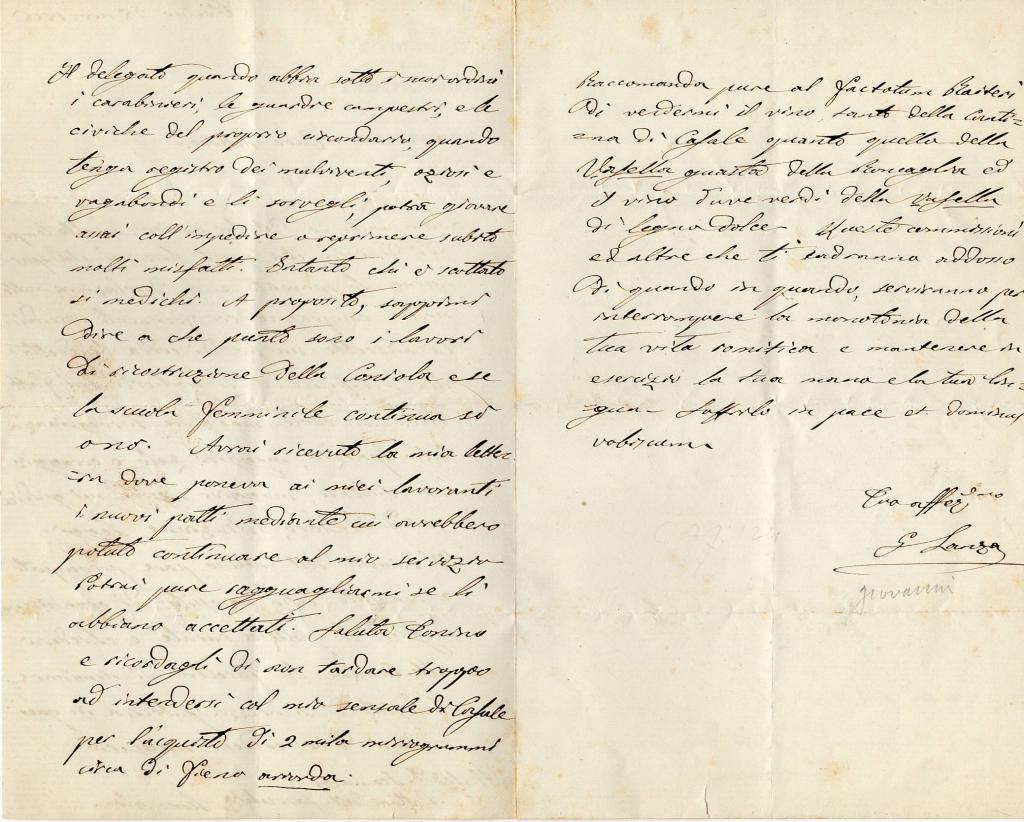 Il delegato quando abbia sotto i suoi ordini
i carabinieri, le guardie campestri, e le
civiche del proprio circondario, quando
tenga registro dei malviventi, oziosi e
vagabondi e li sorvegli, potrà giovare
assai coll'impedire o reprimere subito
molti misfatti. Intanto chi è scottato
si medichi. A proposito, sappimi
dire a che punto sono i lavori
di ricostruzione della Consola e se
la scuola femminile continua sì
o no. Avrai ricevuto la mia lette-
=ra dove poneva ai miei lavoranti
i nuovi patti mediante cui avrebbero
potuto continuare al mio servizio
Potrai pure ragguagliarmi se li
abbiano accettati. Saluta Tonino
e ricordagli di non tardare troppo
ad intendersi col mio sensale di Casale
per l'acquisto di 2 mila miriogrammi
circa di fieno
Raccomanda pure al factotum
di vendermi il vino, tanto della Canti-
=na di Casale quanto quello della
Vasella guasta della Roncaglia ed
il vino d'uve verdi della Vasella
di legno dolce. Queste commissioni
ed altre che ti cadranno addosso
di quando in quando, serviranno per
interrompere la monotonia della
tua vita romitica e mantenere in
esercizio la tua mano e la tua lin=
gua. in pace et dominus
vobiscum
Tuo affez.mo
G Lanza
giovanni